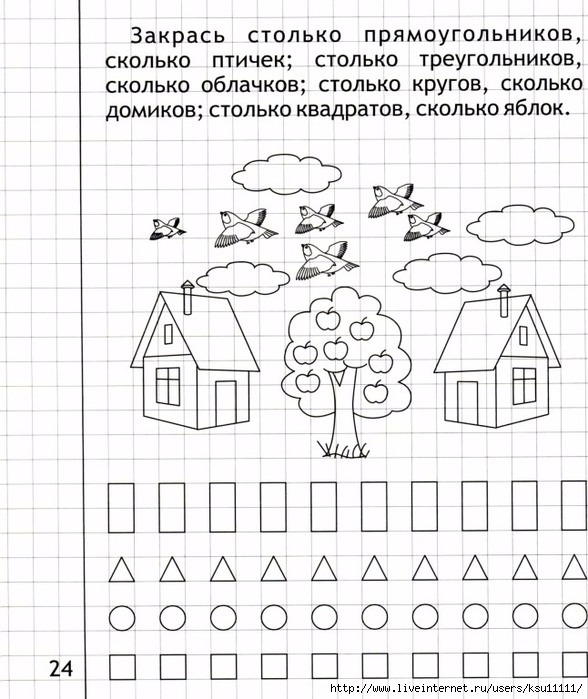 Закрась столько прямоугольников,
сколько птичек; столько треугольников,
сколько облачков; столько кругов, сколько
домиков; столько квадратов, сколько яблок.
24
http://www.liveinternet.ru/users/ksu11111/